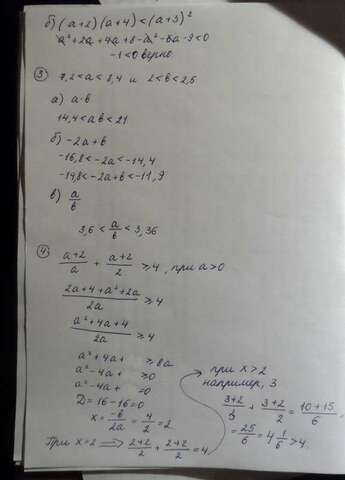 б) (a+2)(a+4)<(a+3)²
a²+2a+4a+8-a²-6a-9<0
-1<0 верно
③ 7,2<a<8,4 и 2<b<2,5
а) a·b
14,4<ab<21
б) -2a+b
-16,8<-2a<-14,4
-14,8<-2a+b<-11,9
в) a/b
3,6 < a/b < 3,36
④ (a+2)/a + (a+2)/2 ≥4, при a>0
(2a+4+a²+2a)/2a ≥4
(a²+4a+4)/2a ≥4
a²+4a+ ≥8a
a²-4a+ ≥0
a²-4a+ =0
D=16-16=0
x = -b/2a = 4/2 = 2
При x=2 ⟹ (2+2)/2 + (2+2)/2 = 4
при x>2
например, 3
(3+2)/3 + (3+2)/2 = (10+15)/6 =
= 25/6 = 4 1/6 >4